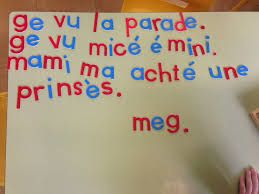 ge vu la parade.
ge vu micé é mini.
mami ma achté une
prinsès.
meg.